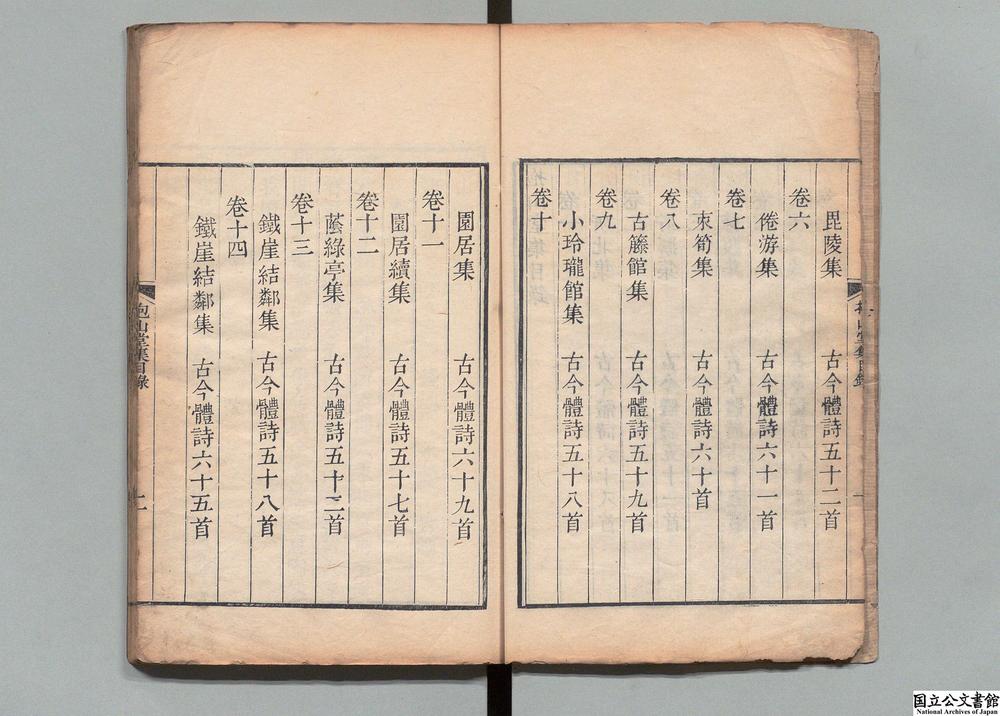 毘陵集 古今體詩五十二首
卷六
倦游集 古今體詩六十一首
卷七
束筍集 古今體詩六十首
卷八
古籐館集 古今體詩五十九首
卷九
小玲瓏館集 古今體詩五十八首
卷十
園居集 古今體詩六十九首
卷十一
園居續集 古今體詩五十七首
卷十二
蔭綠亭集 古今體詩五十二首
卷十三
鐵崖結鄰集 古今體詩五十八首
卷十四
鐵崖結鄰集 古今體詩六十五首
抱山堂集目錄
国立公文書館
National Archives of Japan